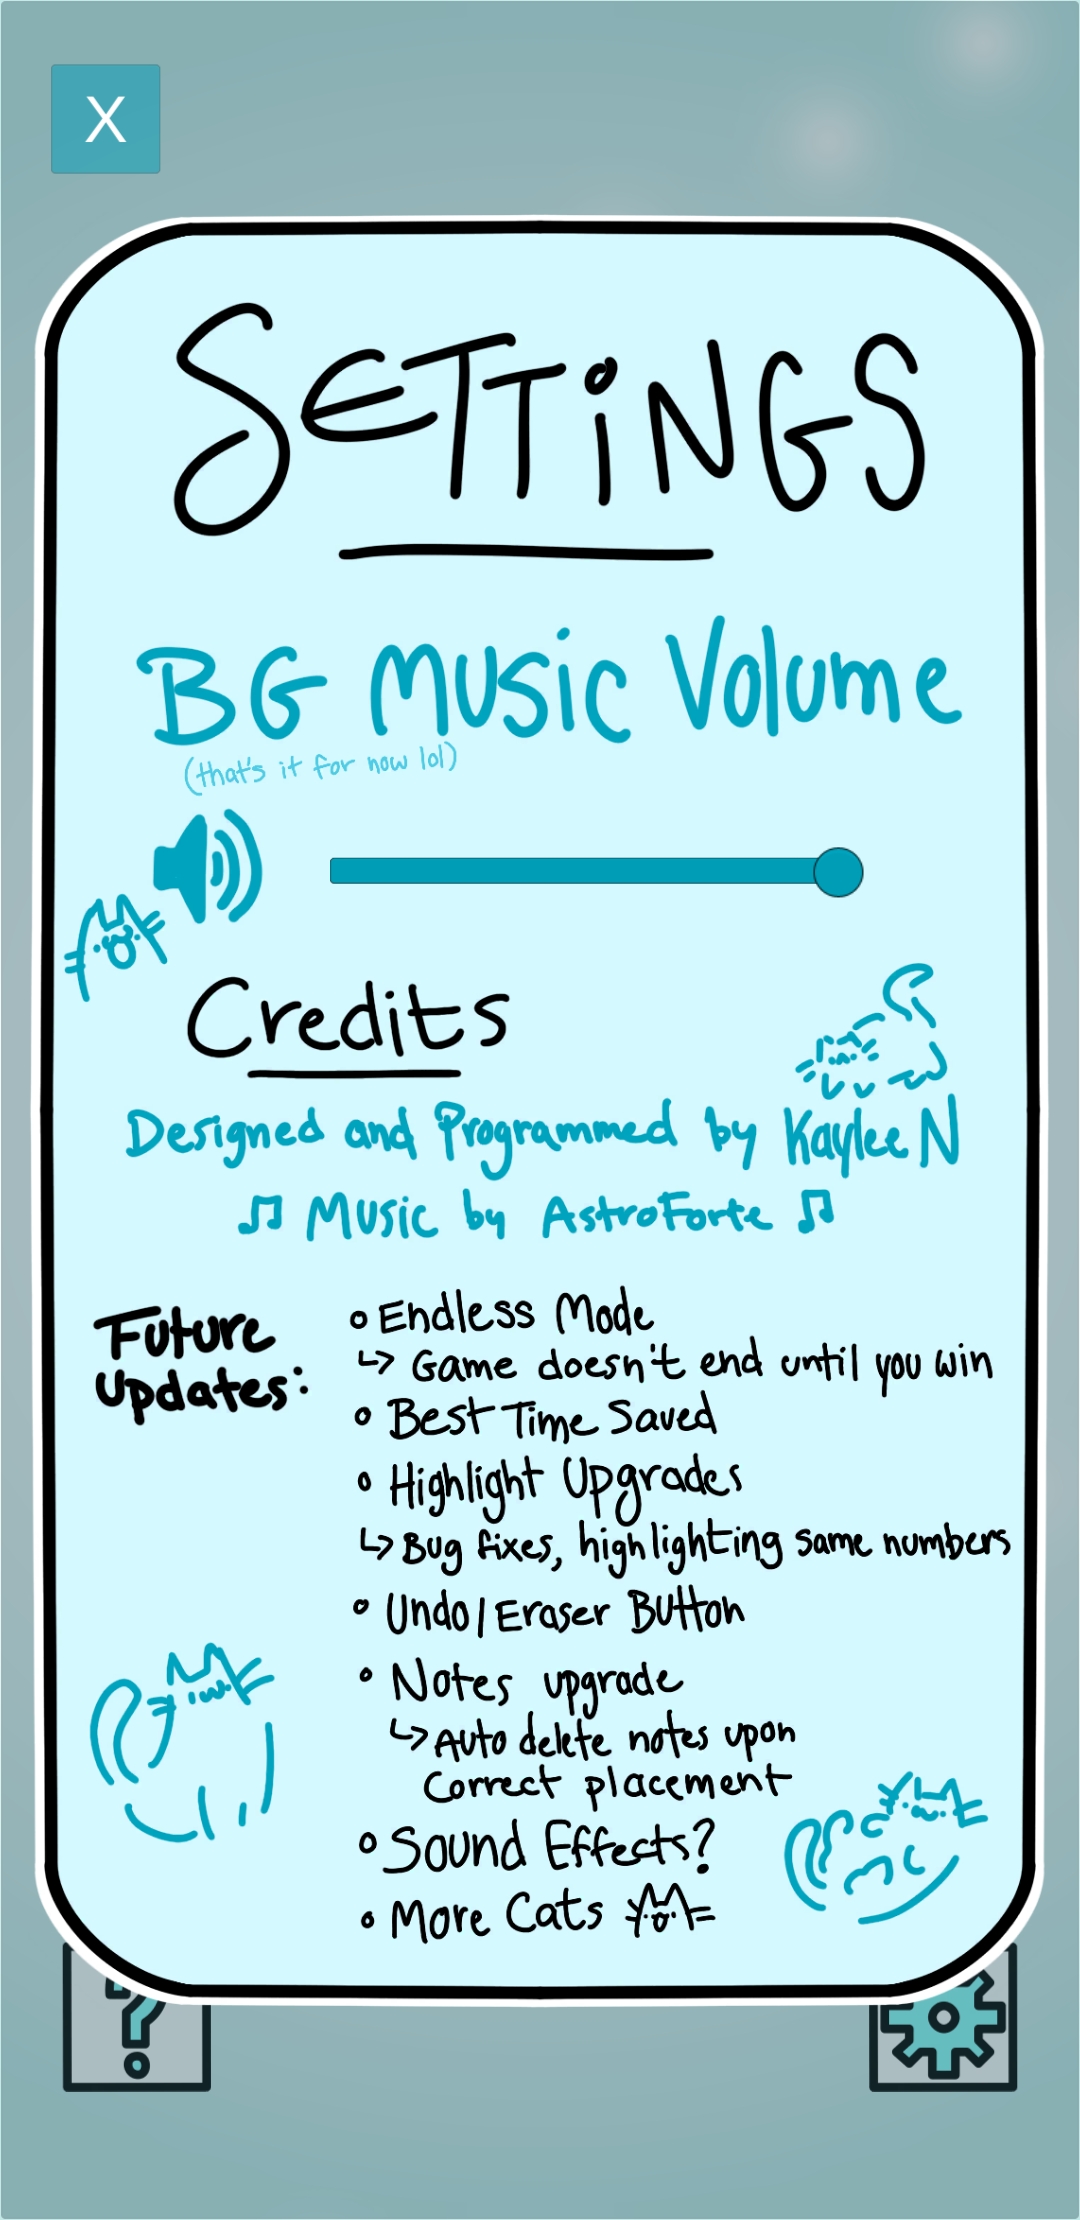 X
SETTiNGS
BG Music Volume
(that's it for now lol)
Credits
Designed and Programmed by Kaylee N
♫ Music by AstroForte ♫
Future
Updates:
o Endless Mode
↳ Game doesn't end until you win
o Best Time Saved
o Highlight Upgrades
↳ Bug fixes, highlighting same numbers
o Undo/Eraser Button
• Notes upgrade
↳ Auto delete notes upon
correct placement
o Sound Effects?
o More Cats
?